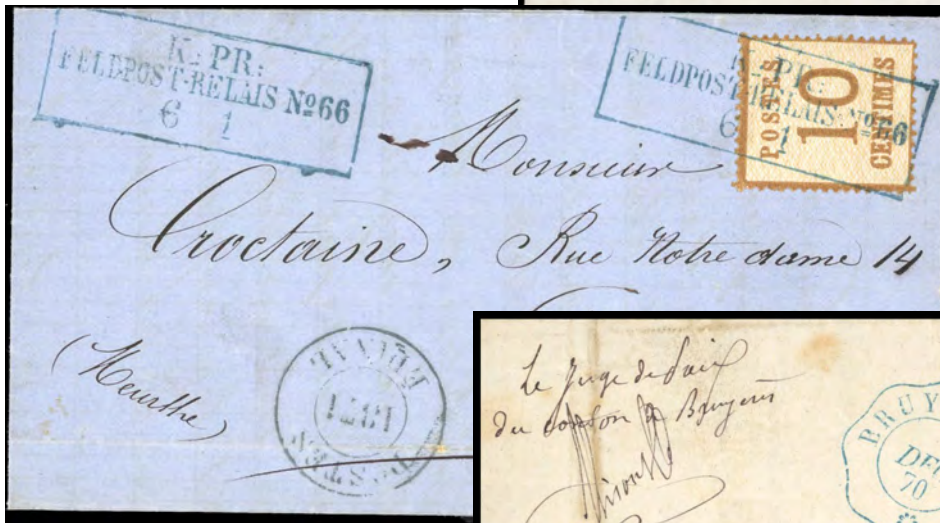 K: PR:
FELDPOST-RELAIS No66
6 1
K: PR:
FELDPOST-RELAIS No66
6 1
POSTES
10
CENTIMES
Monsieur
Croctaine, Rue Notre dame 14
(Meurthe)
EPINAL
1871
Le Juge de Paix
du canton de Bruyères
BRUY
DEC
70